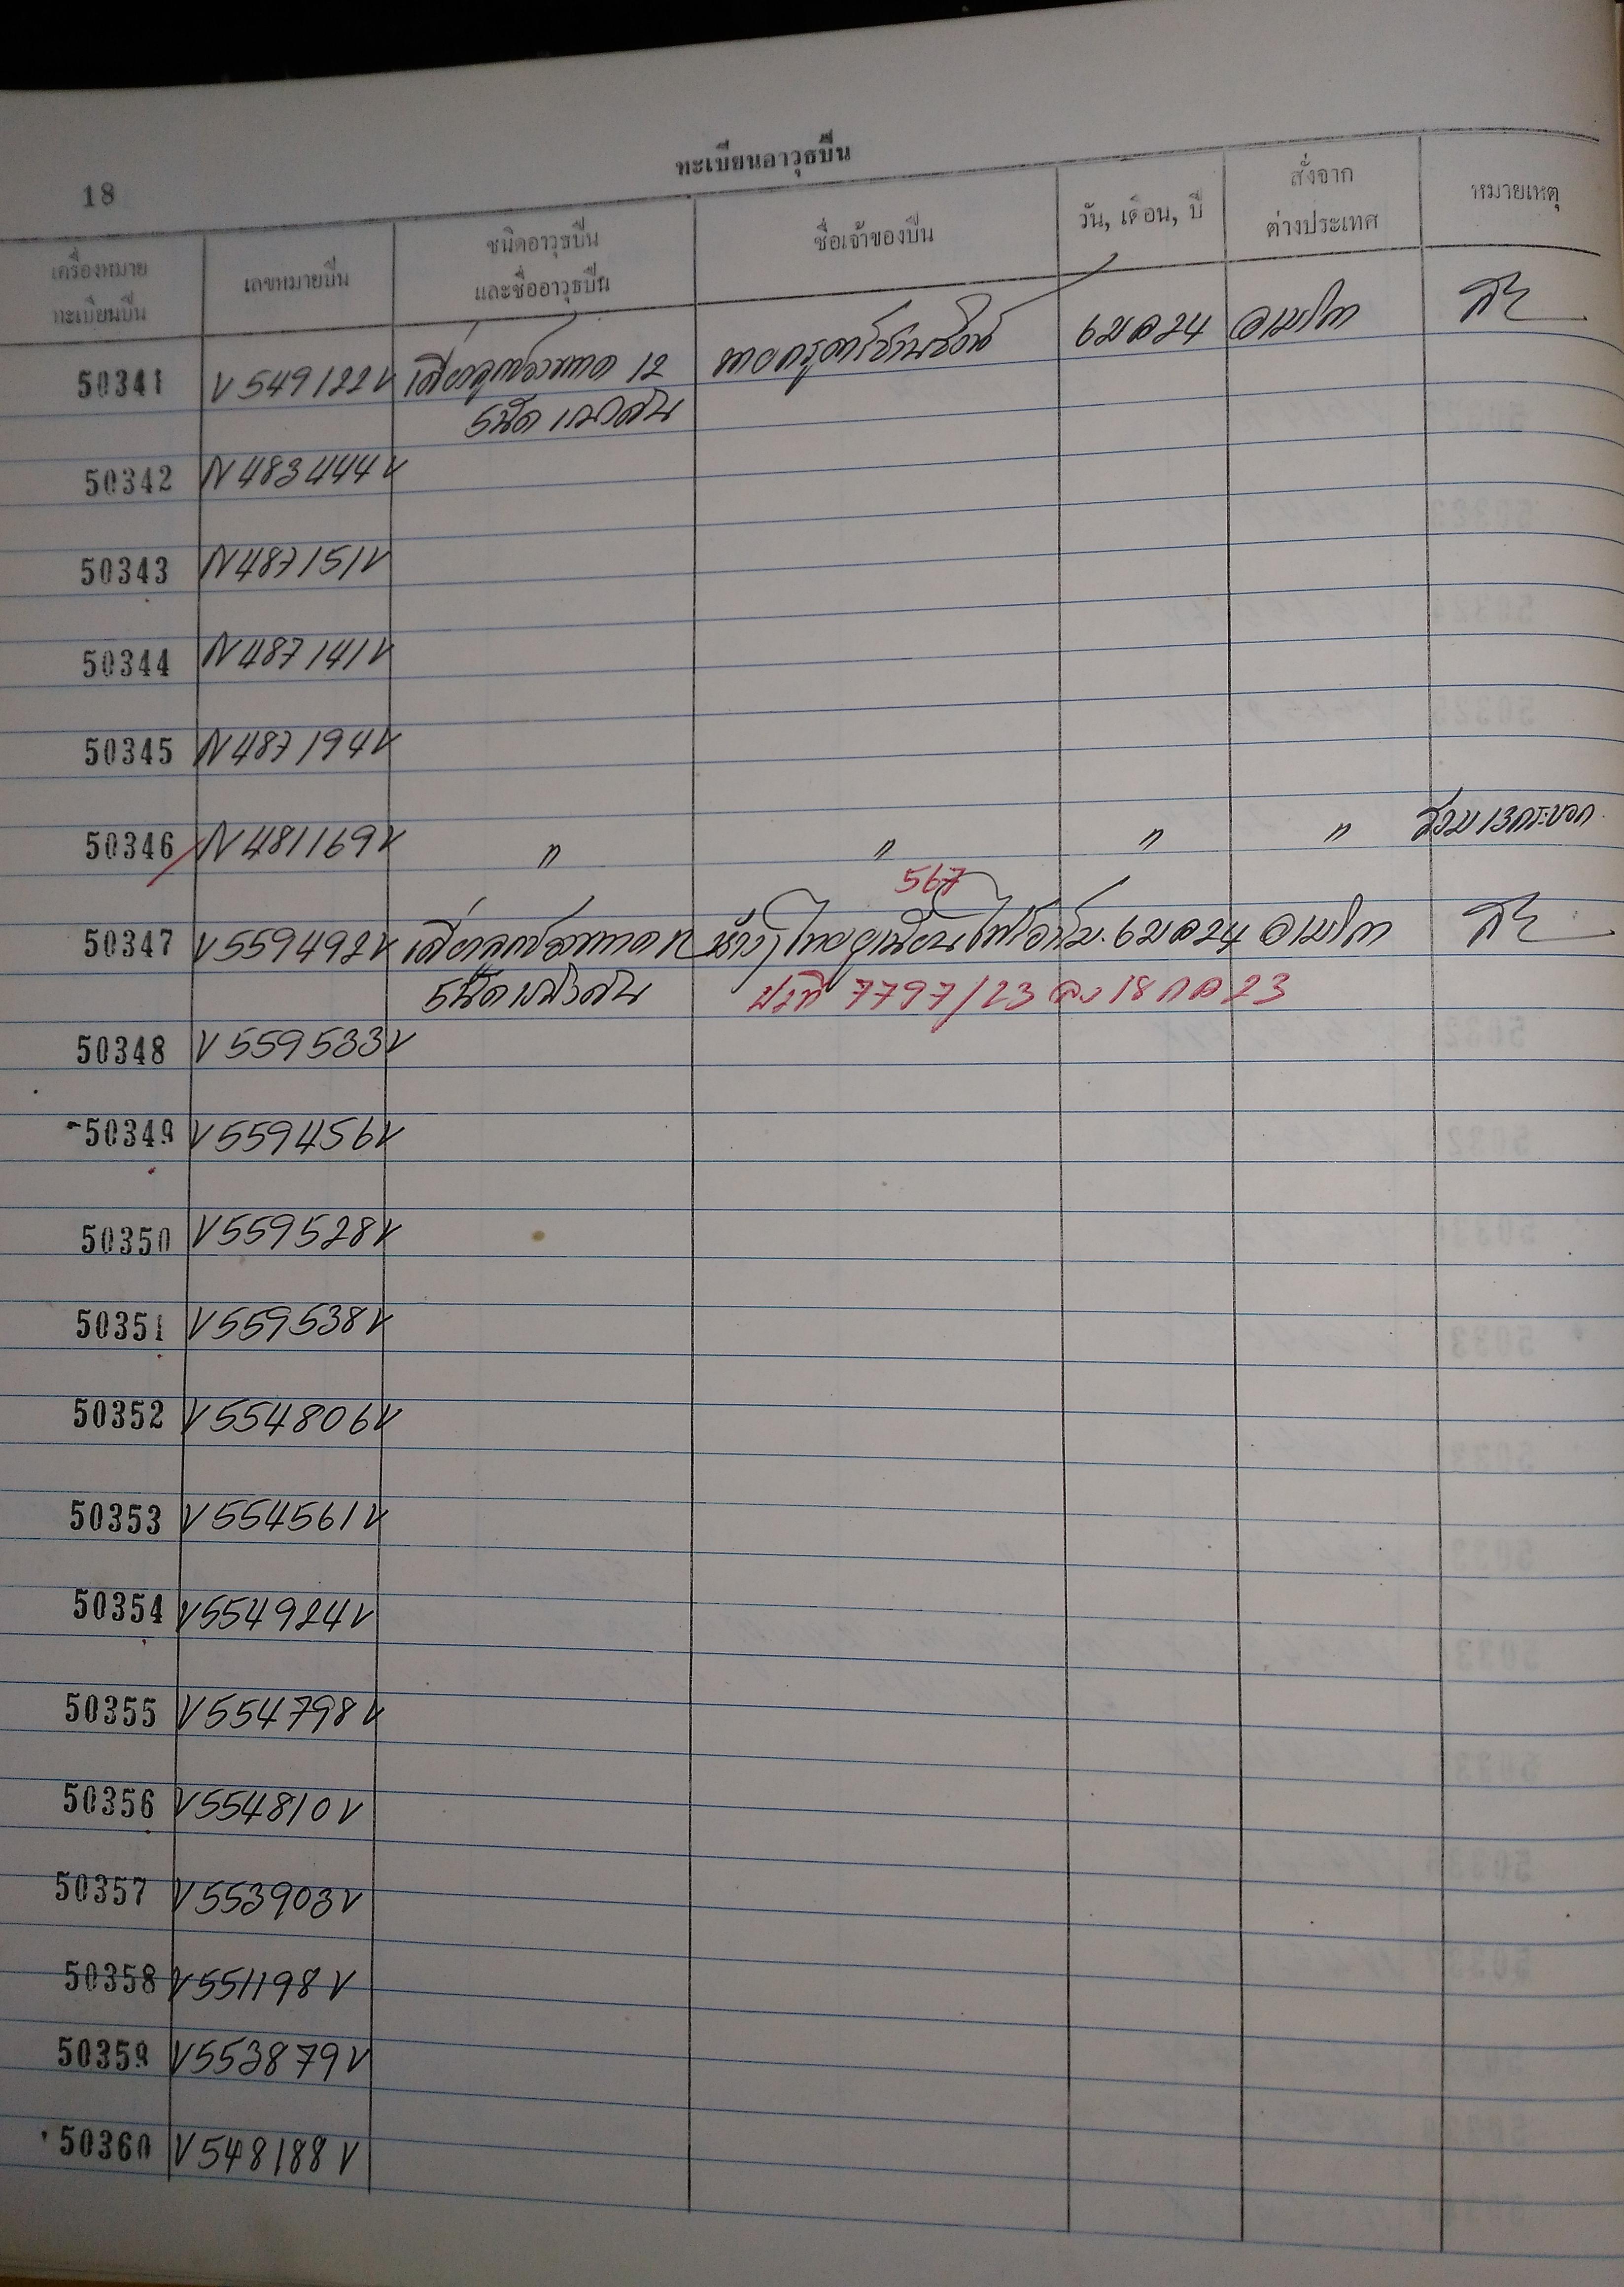 ทะเบียนอาวุธปืน
18
เครื่องหมาย
ทะเบียนปืน
เลขหมายปืน
ชนิดอาวุธปืน
และชื่ออาวุธปืน
ชื่อเจ้าของปืน
วัน, เดือน, ปี
สั่งจาก
ต่างประเทศ
หมายเหตุ
50341 V549122V เดี่ยวลูกซองขนาด 12 6 มค 24 อเมริกา
5 นัด
50342 N483444V
50343 N487151V
50344 N487141V
50345 N487194V
50346 N481169V " " " " รวม 13 กระบอก
567
50347 V559492V เดี่ยวลูกซองขนาด 12 6 มค 24 อเมริกา
5 นัด ปท 7797/23 ลว 18 กค 23
50348 V559533V
50349 V559456V
50350 V559528V
50351 V559538V
50352 V554806V
50353 V554561V
50354 V554924V
50355 V554798V
50356 V554810V
50357 V553903V
50358 V551198V
50359 V553879V
50360 V548188V